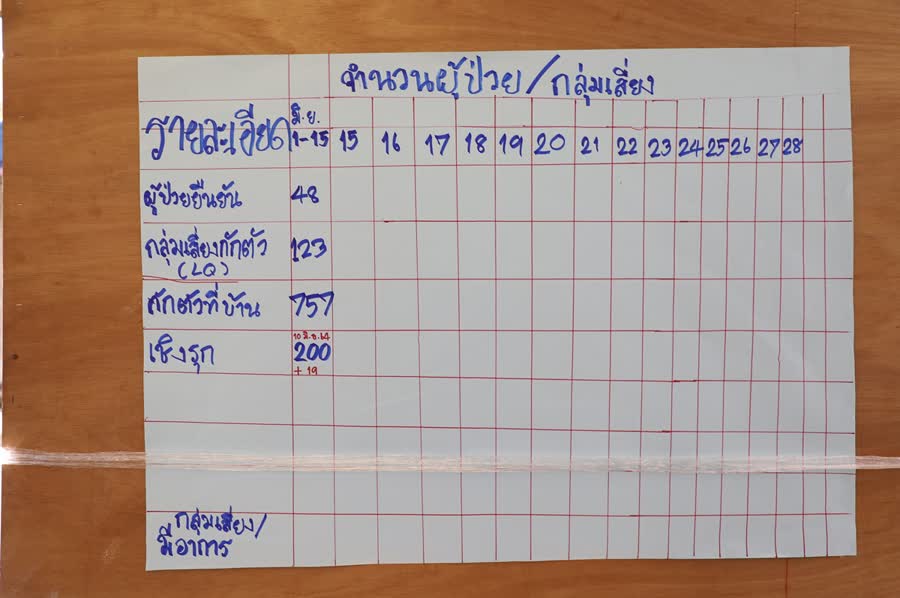 จำนวนผู้ป่วย/กลุ่มเสี่ยง
รายละเอียด
มิ.ย.
1-15 15 16 17 18 19 20 21 22 23 24 25 26 27 28
ผู้ป่วยยืนยัน 48
กลุ่มเสี่ยงกักตัว 123
(LQ)
กักตัวที่บ้าน 757
10 มิ.ย. 64
เชิงรุก 200
+ 19
กลุ่มเสี่ยง/
มีอาการ